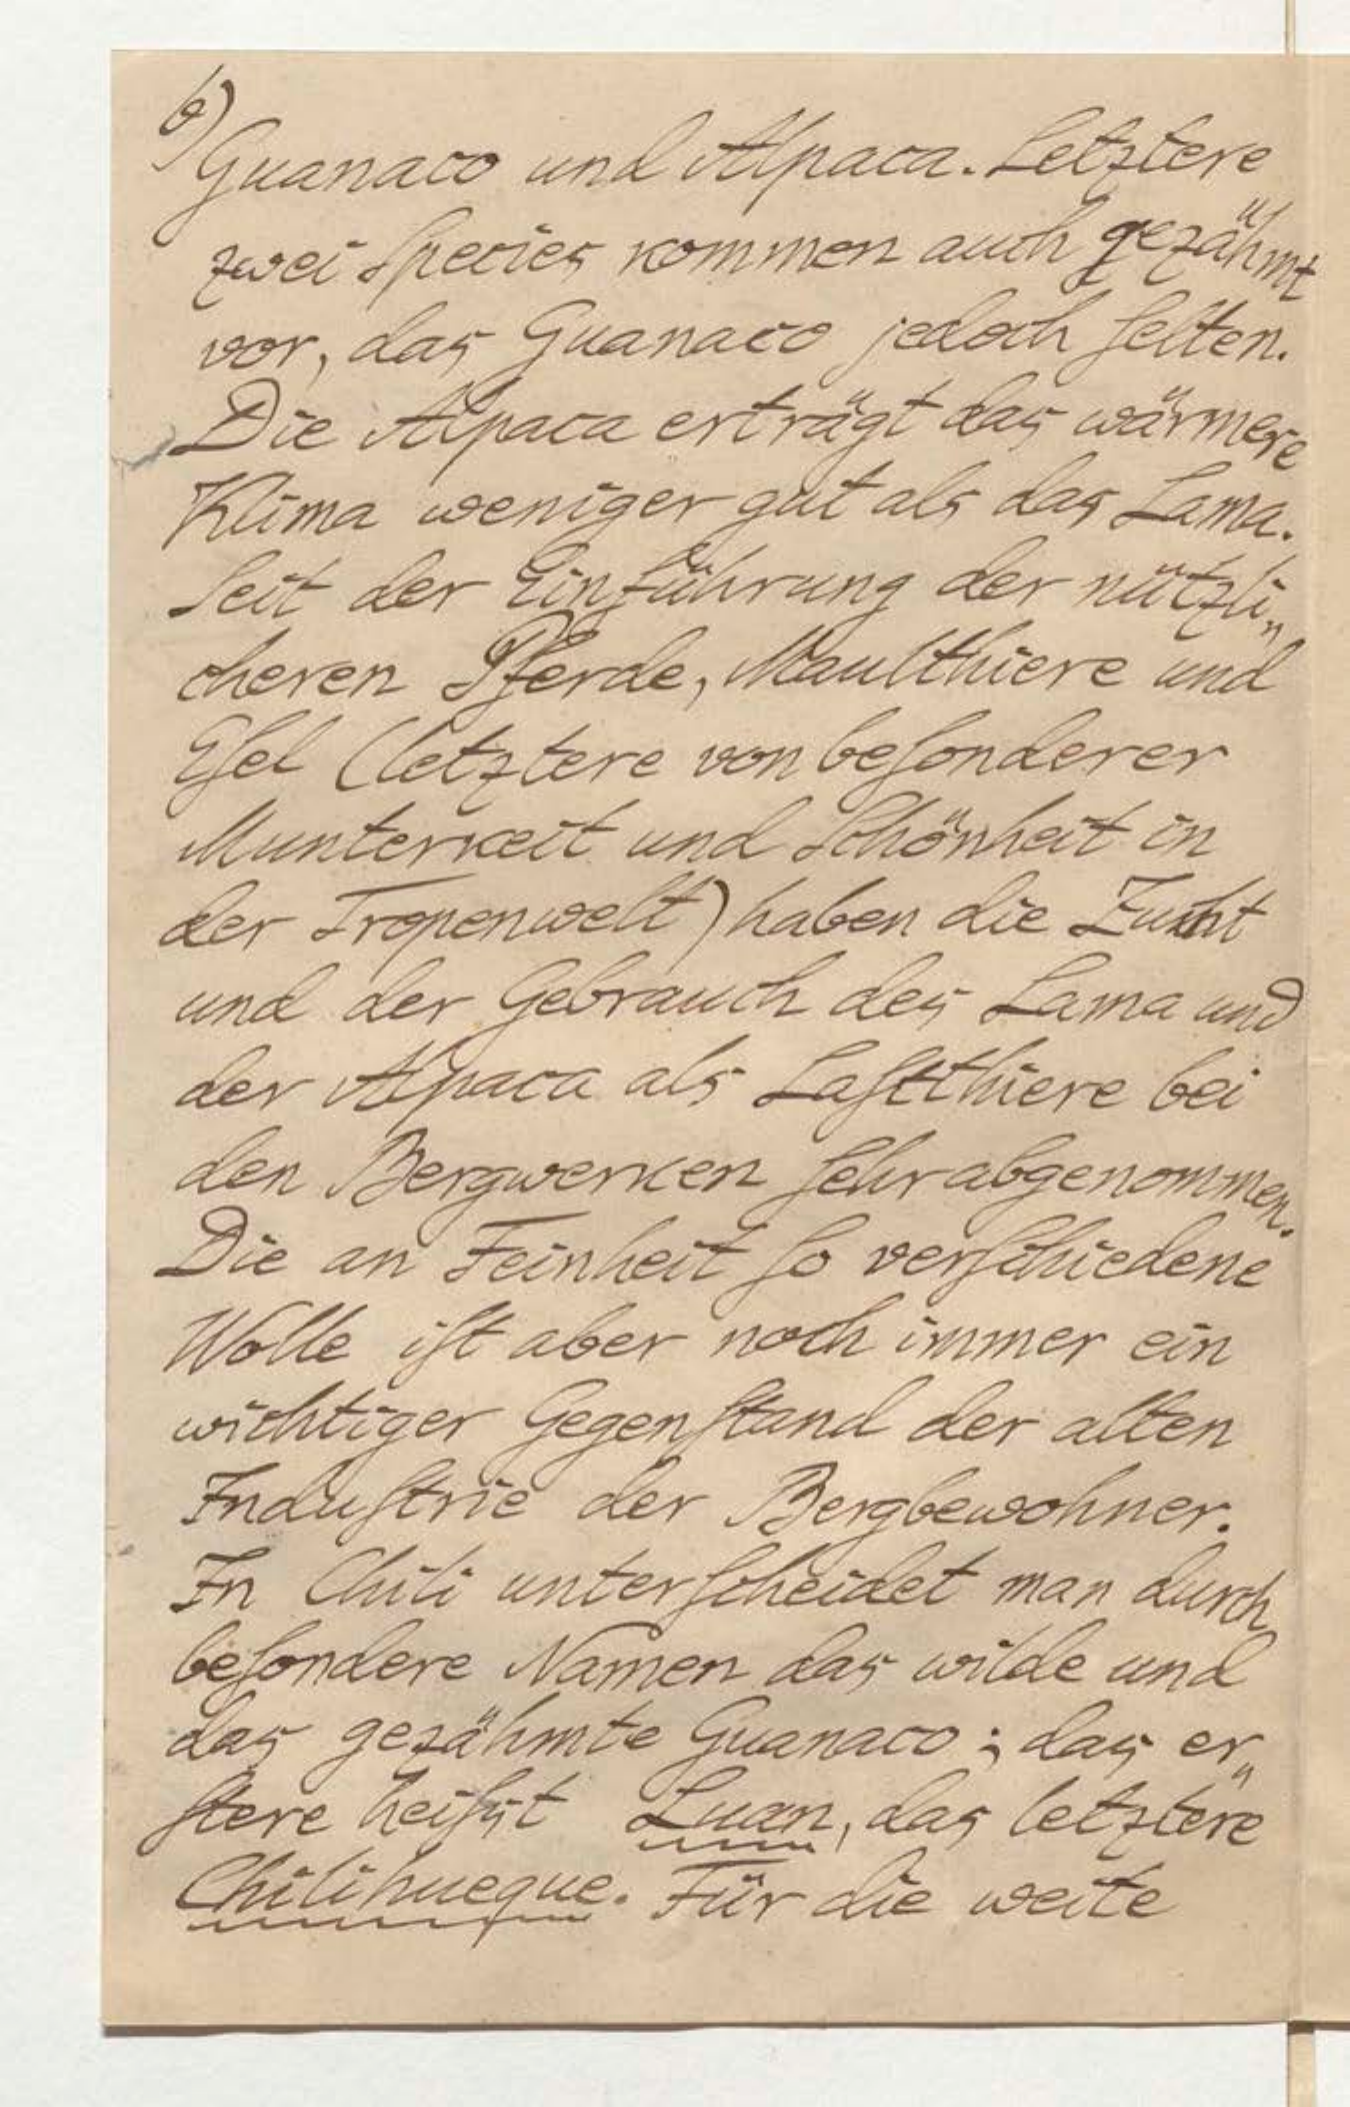 6)
Guanaco und Alpaca. Letztere
zwei Species kommen auch gezähmt
vor, das Guanaco jedoch ſelten.
Die Alpaca erträgt das wärmere
Klima weniger gut als das Lama.
Seit der Einführung der nützli„
cheren Pferde, Maulthiere und
Eſel (letztere von beſonderer
Munterkeit und Schönheit in
der Tropenwelt) haben die Zucht
und der Gebrauch des Lama und
der Alpaca als Laſtthiere bei
den Bergwerken ſehr abgenommen.
Die an Feinheit ſo verſchiedene
Wolle iſt aber noch immer ein
wichtiger Gegenſtand der alten
Induſtrie der Bergbewohner.
In Chili unterſcheidet man durch
beſondere Namen das wilde und
das gezähmte Guanaco; das er„
ſtere heiſst Luan, das letztere
Chilihueque. Für die weite